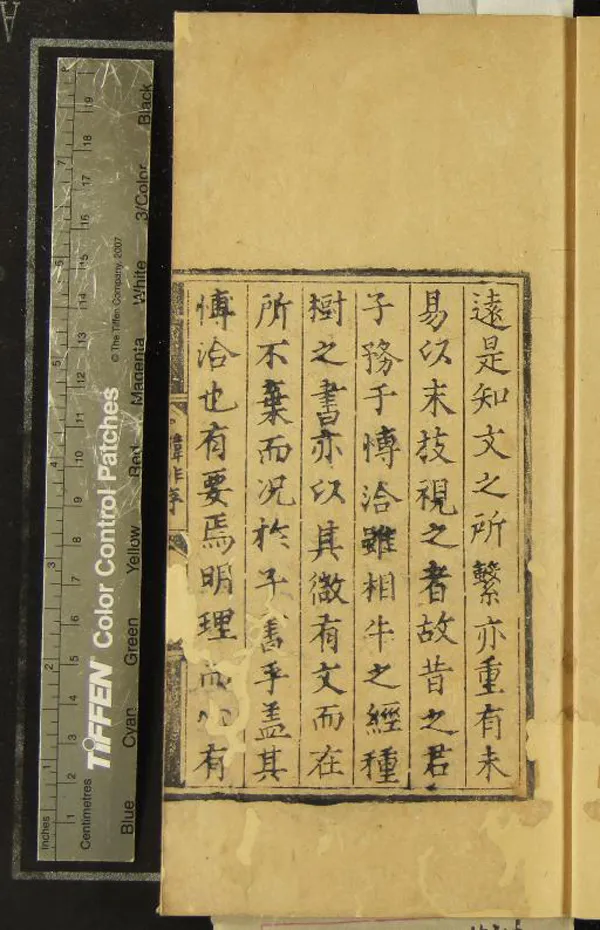 遠是知文之所繫亦重有未
易以末技視之者故昔之君
子務于博洽雖相牛之經種
樹之書亦以其微有文而在
所不棄而况於子書乎盖其
博洽也有要焉明理而心有
韓非序
Inches 1 2 3 4 5 6 7 8
Centimetres 1 2 3 4 5 6 7 8 9 10 11 12 13 14 15 16 17 18 19
TIFFEN Color Control Patches
© The Tiffen Company, 2007
Blue Cyan Green Yellow Red Magenta White 3/Color Black
A